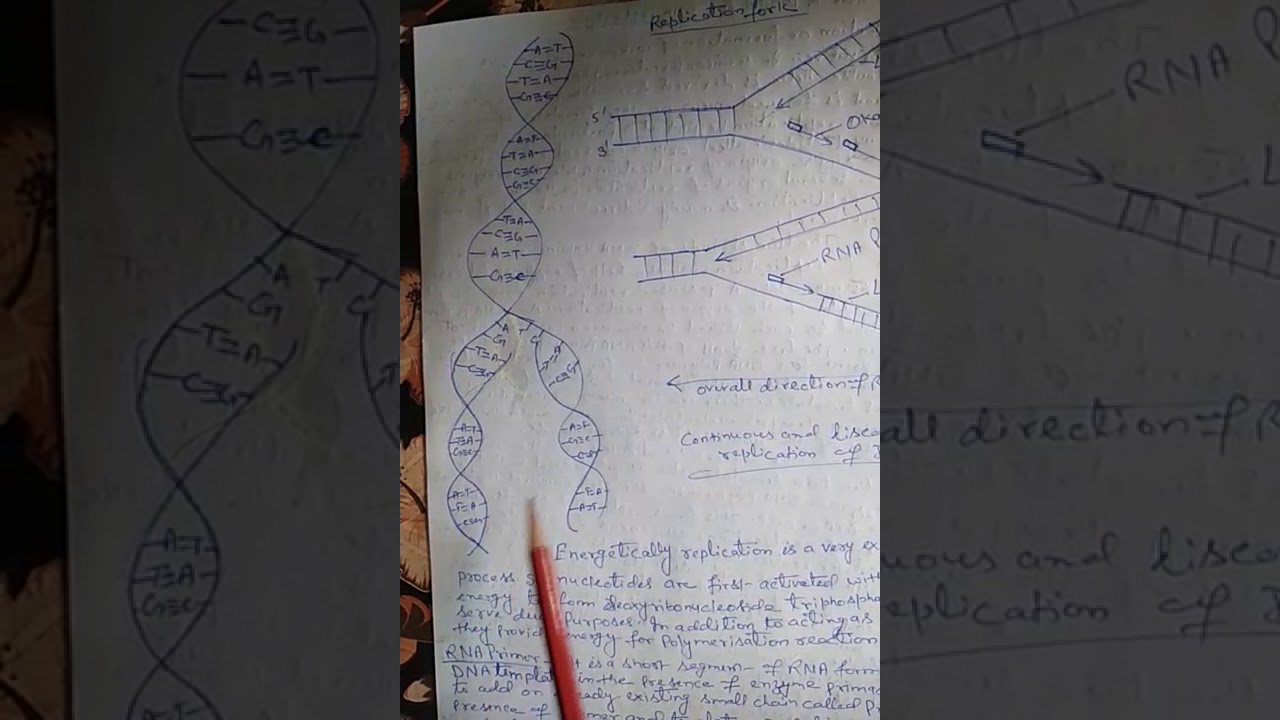 Replication fork
A=T
C≡G
T=A
G≡C
A=T
T=A
C≡G
G≡C
T=A
C≡G
A=T
G≡C
A T
G C
T=A
C≡G
C≡G
A=T
T=A
G≡C
A=T
G≡C
A=T
T=A
C≡G
T=A
A=T
5'
3'
Oka
RNA P
L
overall direction of R
Continuous and
replication of
Energetically replication is a very ex
process so nucleotides are first activated with
energy to form deoxyribonucleoside triphospha
serve purposes. In addition to acting as
they provide energy for polymerisation reaction
RNA Primer - It is a short segment of RNA form
DNA template in the presence of enzyme prima
to add on already existing small chain called p
presence of